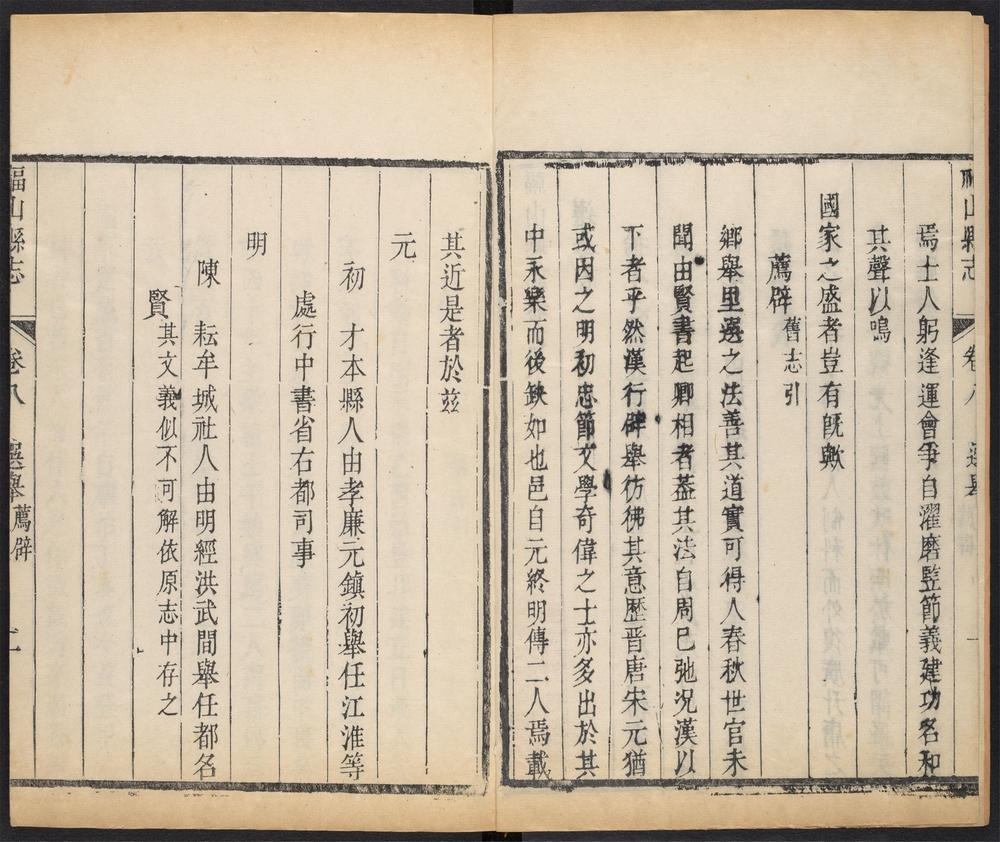 山縣志
卷八
焉士人躬逢運會爭自濯磨竪節義建功名和
其聲以鳴
國家之盛者豈有既歟
薦辟 舊志引
鄉舉里選之法善其道實可得人春秋世官未
聞由賢書起卿相者葢其法自周已弛况漢以
下者乎然漢行辟舉彷彿其意歷晉唐宋元猶
或因之明初忠節文學奇偉之士亦多出於其
中永樂而後缺如也邑自元終明傳二人焉載
其近是者於茲
元
初 才本縣人由孝廉元鎮初舉任江淮等
處行中書省右都司事
明
陳 耘牟城社人由明經洪武間舉任都名
賢其文義似不可解依原志中存之
福山縣志 卷八 選舉 薦辟